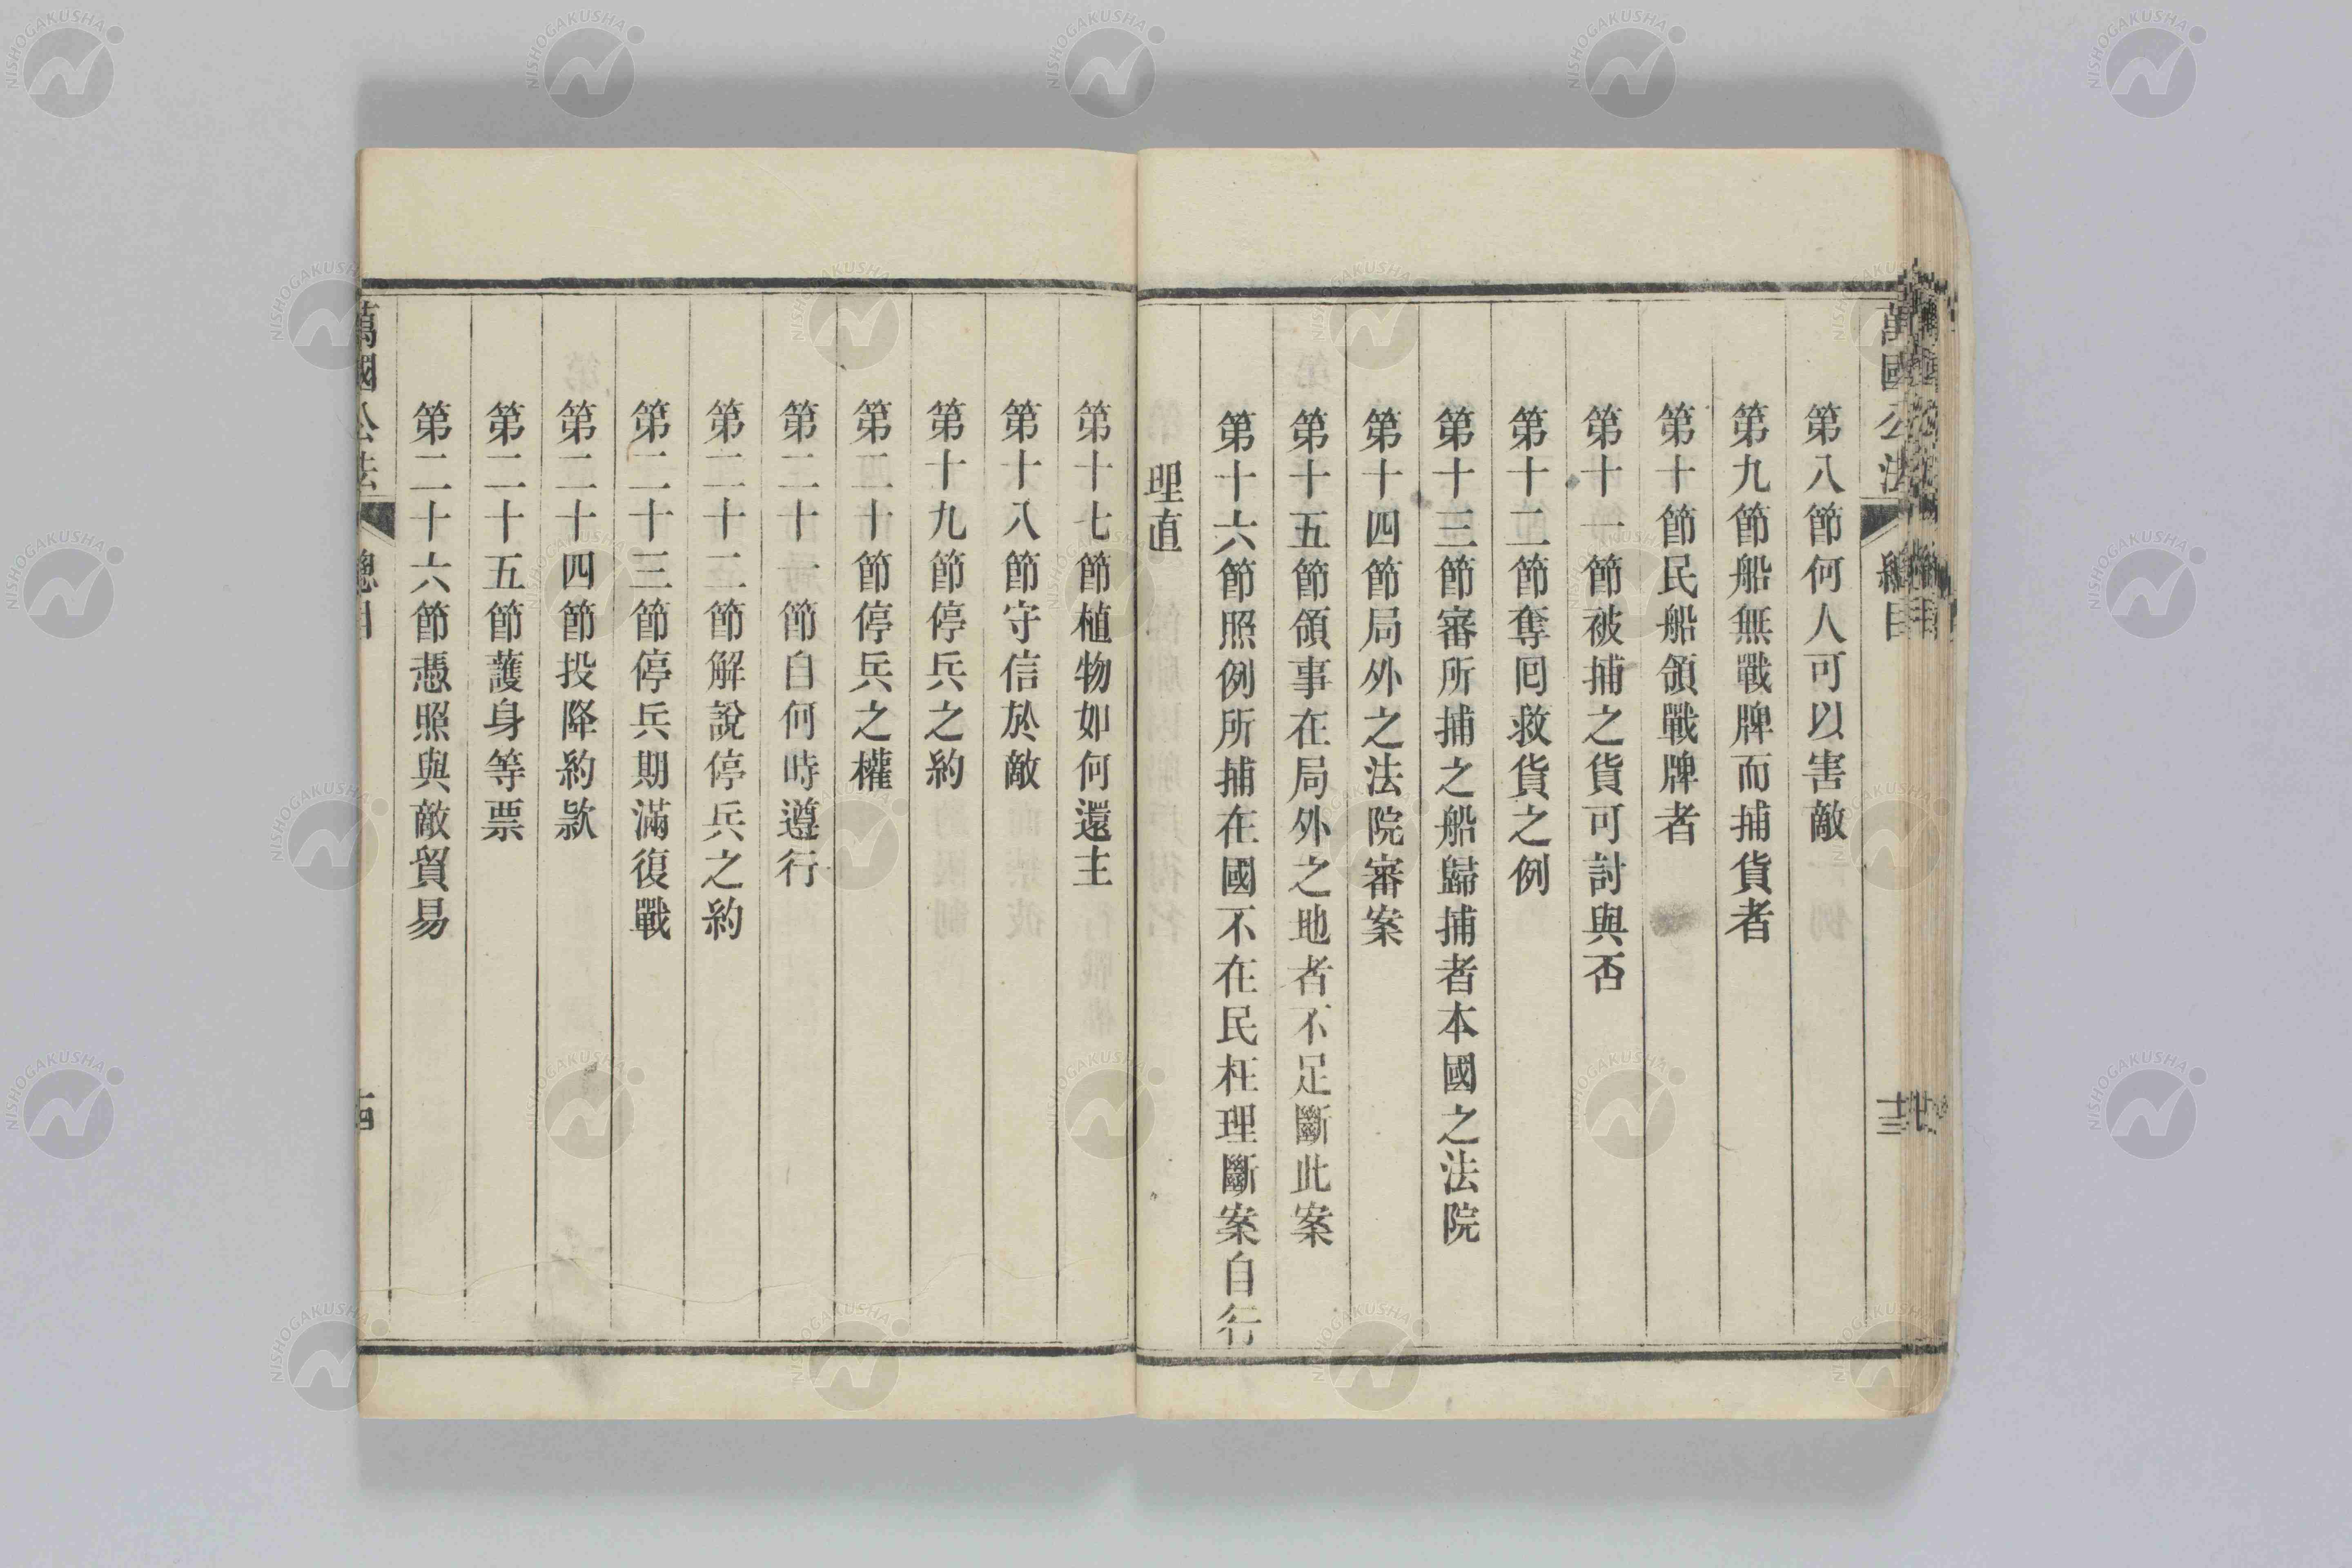 萬國公法 總目 十三
第八節何人可以害敵
第九節船無戰牌而捕貨者
第十節民船領戰牌者
第十一節被捕之貨可討與否
第十二節奪囘救貨之例
第十三節審所捕之船歸捕者本國之法院
第十四節局外之法院審案
第十五節領事在局外之地者不足斷此案
第十六節照例所捕在國不在民枉理斷案自行
理直
第十七節植物如何還主
第十八節守信於敵
第十九節停兵之約
第二十節停兵之權
第二十一節自何時遵行
第二十二節解說停兵之約
第二十三節停兵期滿復戰
第二十四節投降約款
第二十五節護身等票
第二十六節憑照與敵貿易
萬國公法 總目 十四
NISHOGAKUSHA